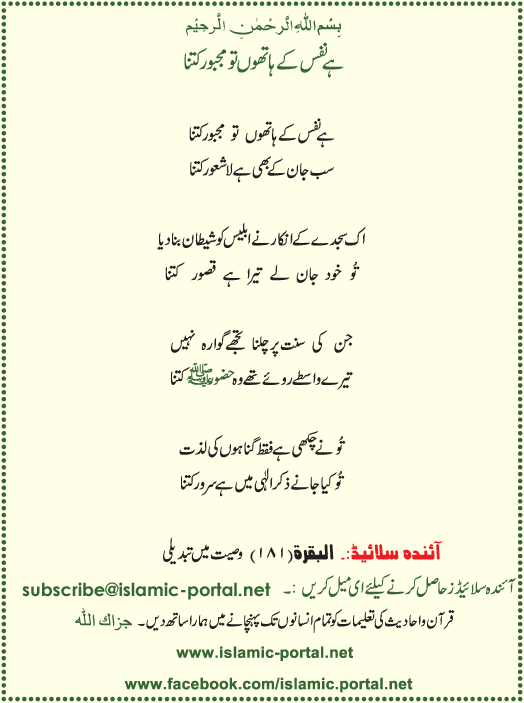 بِسْمِ اللّٰهِ الرَّحْمٰنِ الرَّحِيْمِ
ہے نفس کے ہاتھوں تو مجبور کتنا
ہے نفس کے ہاتھوں تو مجبور کتنا
سب جان کے بھی ہے لاشعور کتنا
اک سجدے کے انکار نے ابلیس کو شیطان بنا دیا
تُو خود جان لے تیرا ہے قصور کتنا
جن کی سنت پر چلنا تجھے گوارہ نہیں
تیرے واسطے روئے تھے وہ حضور ﷺ کتنا
تُو نے چکھی ہے فقط گناہوں کی لذت
تُو کیا جانے ذکر الٰہی میں ہے سرور کتنا
آئندہ سلائیڈ:۔ البقرة (۱۸۱) وصیت میں تبدیلی
آئندہ سلائیڈز حاصل کرنے کیلئے ای میل کریں :۔ subscribe@islamic-portal.net
قرآن و احادیث کی تعلیمات کو تمام انسانوں تک پہنچانے میں ہمارا ساتھ دیں۔ جزاك الله
www.islamic-portal.net
www.facebook.com/islamic.portal.net